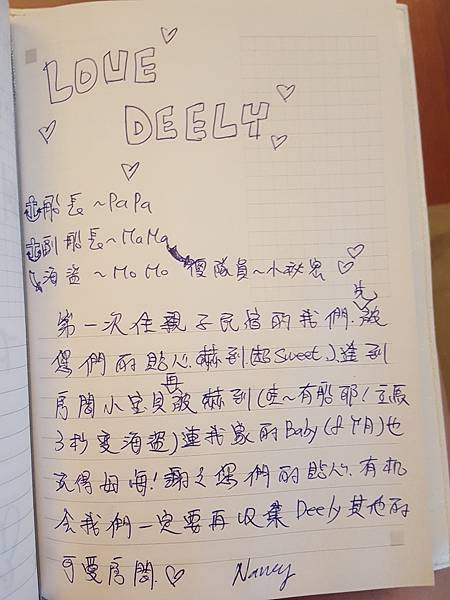 LOVE
DEELY
船長~PaPa
副船長~MaMa
海盜~MoMo 複隊員~小秘密
第一次住親子民宿的我們,先被
你們的貼心嚇到(超Sweet),進到
房間小宝貝再被嚇到(哇~有船耶!立馬
3秒變海盜)連我家的Baby(8M月)也
玩得
謝謝你們的貼心.有机
会我們一定要再收集Deely其他的
可愛房間.
Nancy